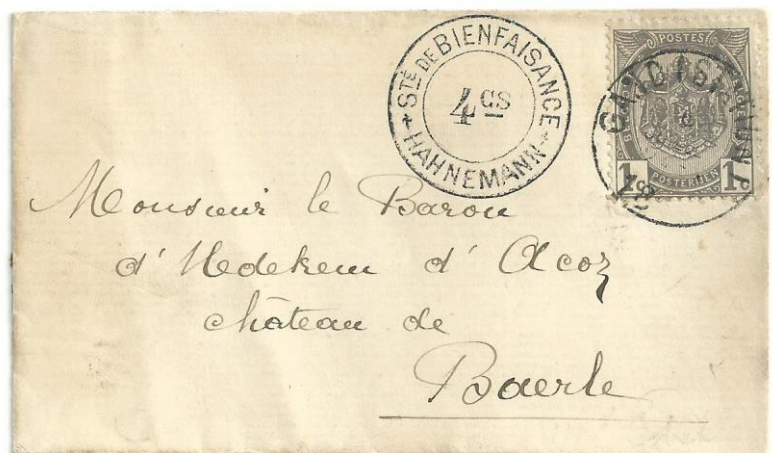 STÉ DE BIENFAISANCE
4 CS
HAHNEMANN
POSTES
POSTERIJEN
1c 1c
Monsieur le Baron
d'Udekem d'Acoz
château de
Baerle